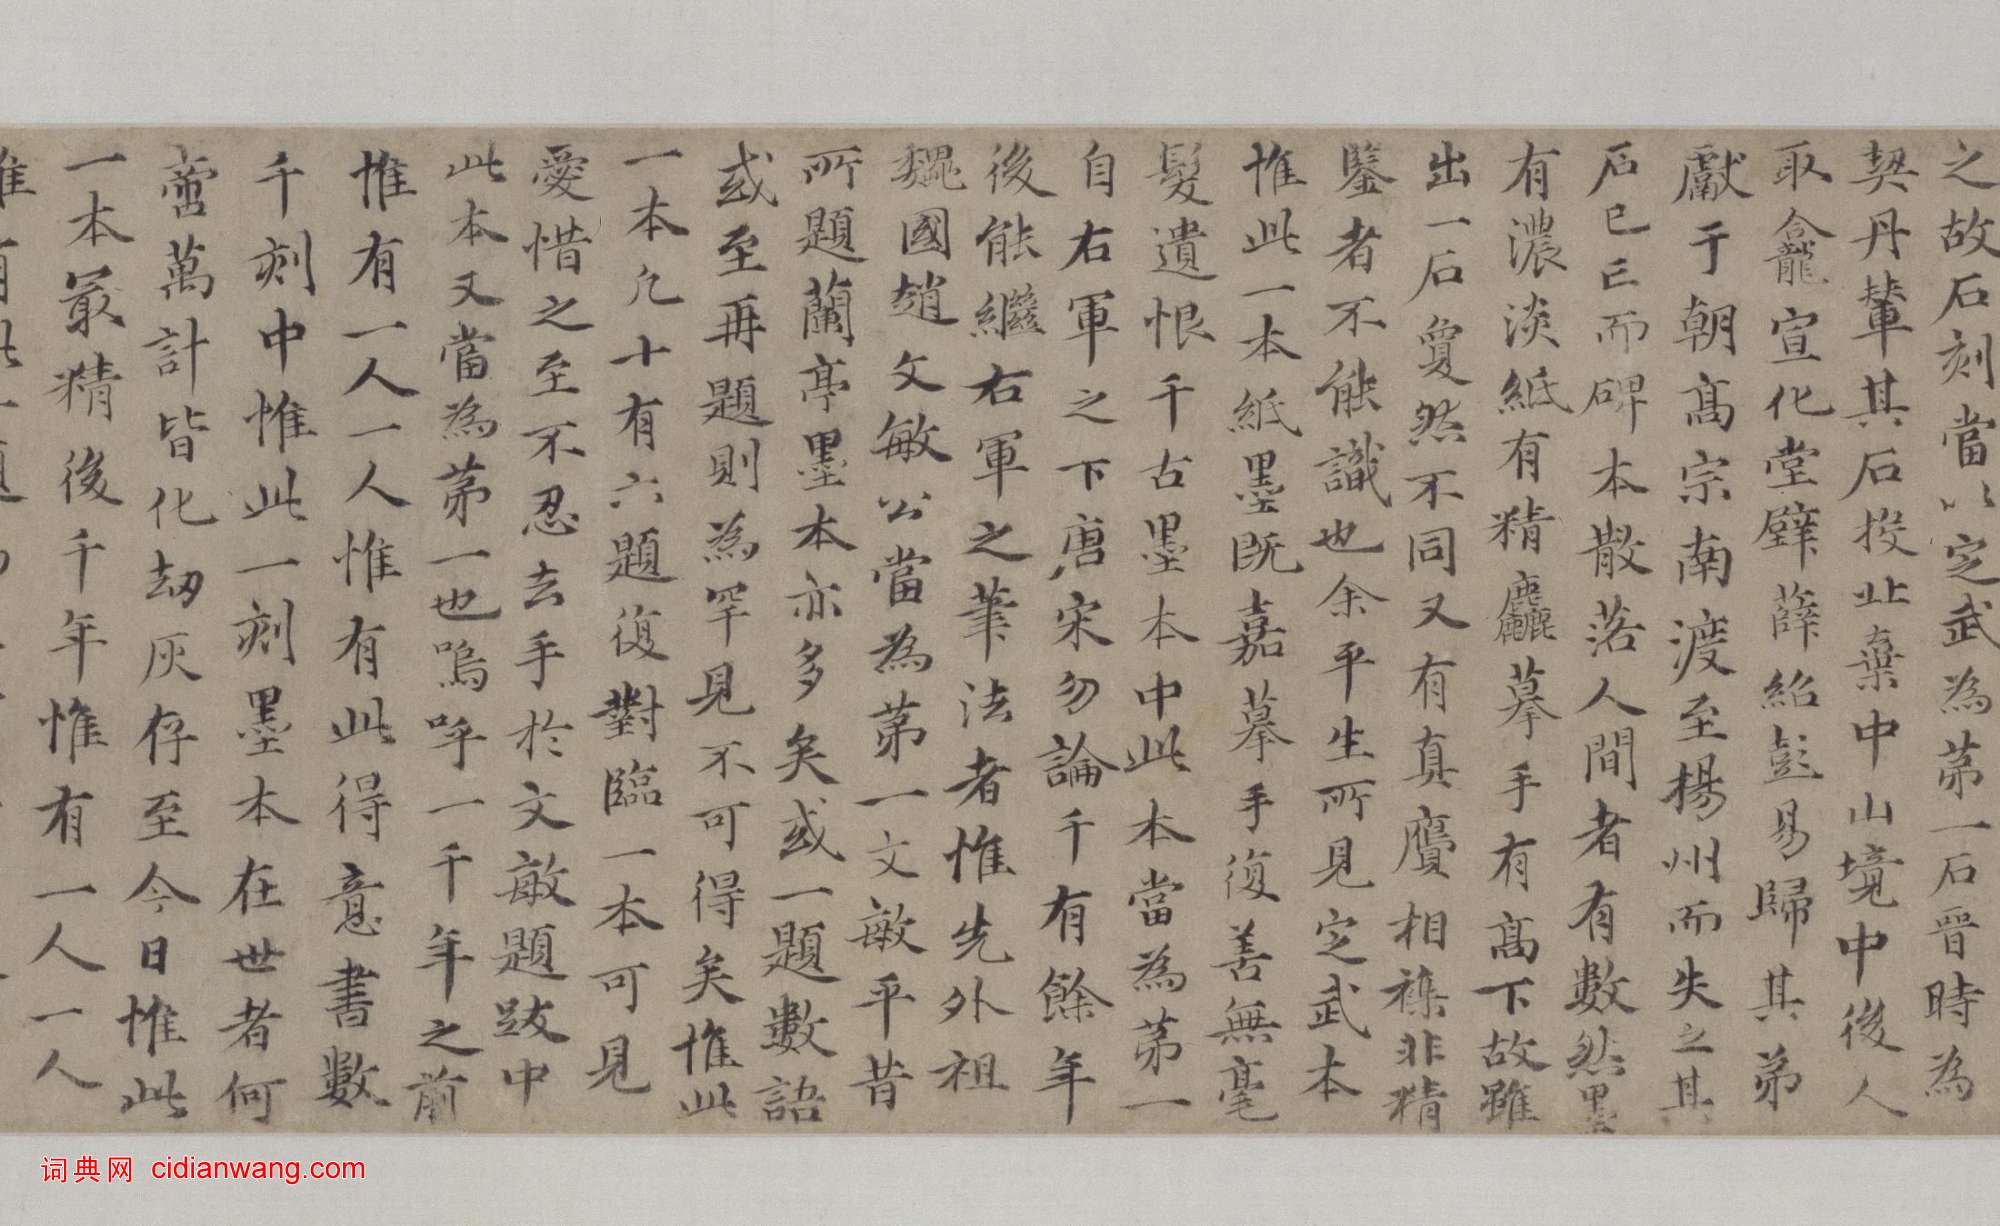 之故石刻當以定武為第一石晉時為
契丹輦其石投止棄中山境中後人
取龕宣化堂壁薛紹彭易歸其弟
獻于朝高宗南渡至楊州而失之其
石已亡而碑本散落人間者有數然墨
有濃淡紙有精麤摹手有高下故雖
出一石敻然不同又有真贗相襍非精
鑒者不能識也余平生所見定武本
惟此一本紙墨既嘉摹手復善無毫
髮遺恨千古墨本中此本當為第一
自右軍之下唐宋勿論千有餘年
後能繼右軍之筆法者惟先外祖
魏國趙文敏公當為第一文敏平昔
所題蘭亭墨本亦多矣或一題數語
或至再題則為罕見不可得矣惟此
一本凡十有六題復對臨一本可見
愛惜之至不忍去手於文敏題跋中
此本又當為第一也嗚呼一千年之前
惟有一人一人惟有此得意書數
千刻中惟此一刻墨本在世者何
啻萬計皆化劫灰存至今日惟此
一本最精後千年惟有一人一人
惟有此一題
词典网 cidianwang.com